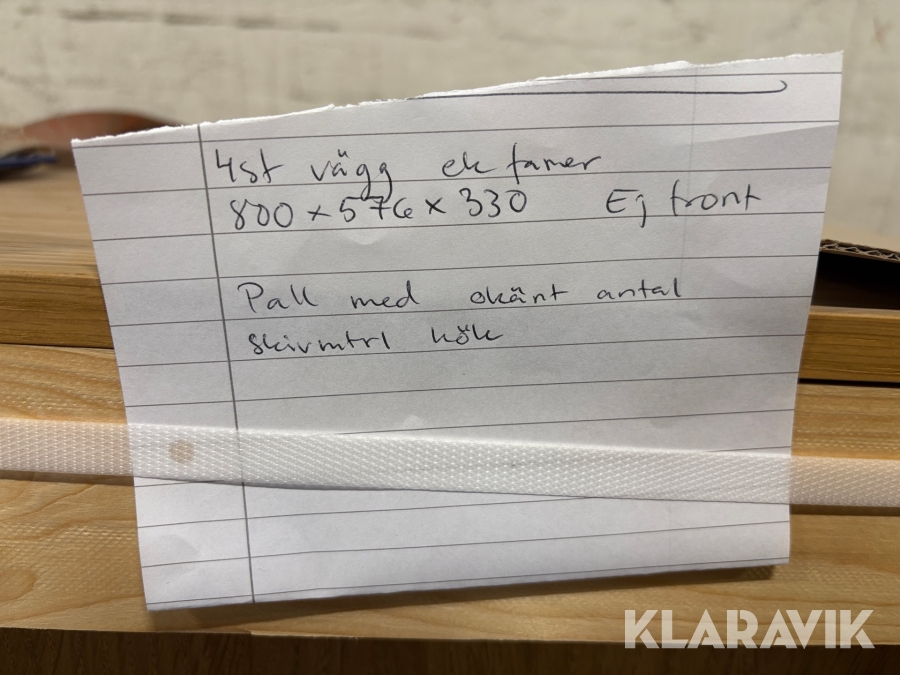 4st vägg ek famer
800 x 576 x 330 Ej front
Pall med okänt antal
skivmtrl kök
KLARAVIK